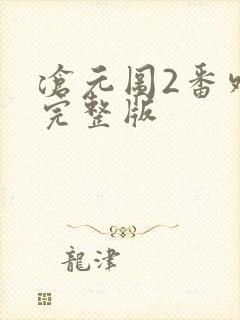 滄元圖2番外
完整版
龍津